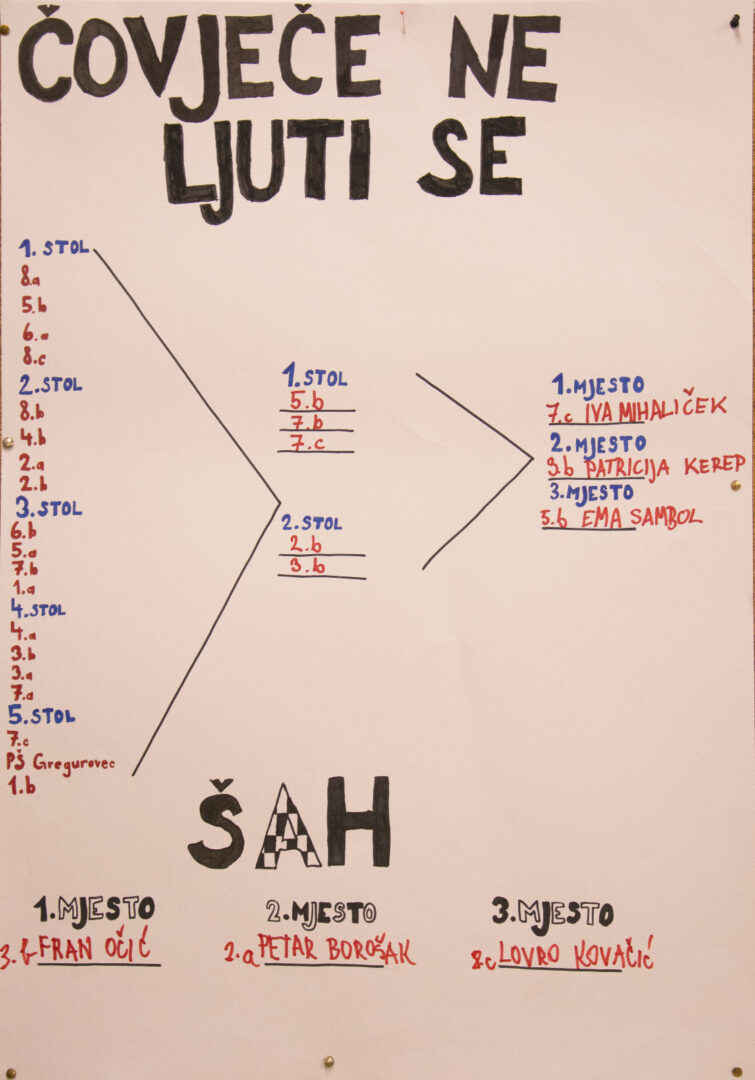 ČOVJEČE NE
LJUTI SE
1. STOL
8.a
5.b
6.a
8.c
2. STOL
8.b
4.b
2.a
2.b
3. STOL
6.b
5.a
7.b
1.a
4. STOL
4.a
3.b
3.a
7.a
5. STOL
7.c
PŠ Gregurovec
1.b
1. STOL
5.b
7.b
7.c
2. STOL
2.b
3.b
1. MJESTO
7.c IVA MIHALIČEK
2. MJESTO
3.b PATRICIJA KEREP
3. MJESTO
5.b EMA SAMBOL
ŠAH
1. MJESTO
3.b FRAN OČIĆ
2. MJESTO
2.a PETAR BOROŠAK
3. MJESTO
8.c LOVRO KOVAČIĆ